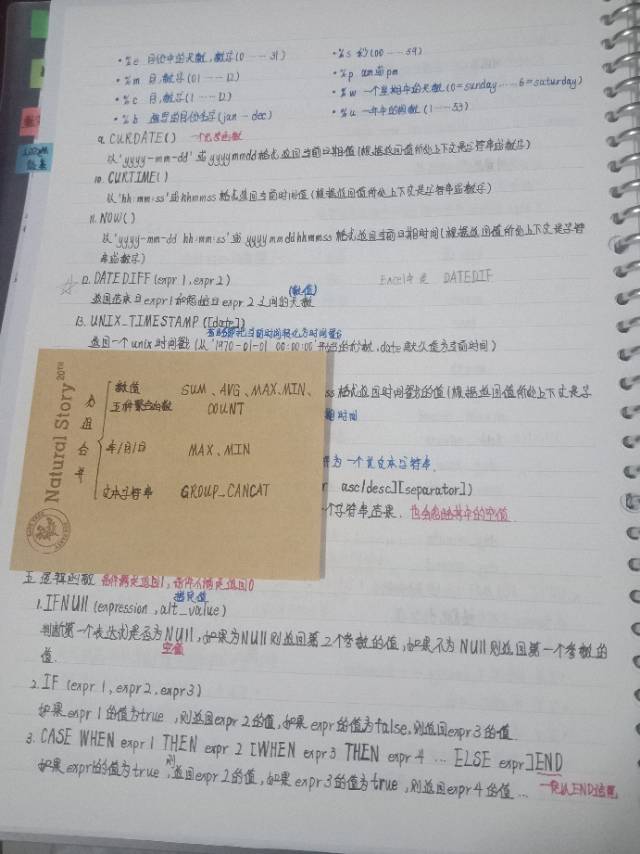 ·%e 月份中的天数,数字(0……31)
·%s 秒(00……59)
·%m 月,数字(01……12)
·%p am或pm
·%c 月,数字(1……12)
·%w 一个星期中的天数(0=sunday……6=saturday)
·%b 缩写的月份名字(jan…dec)
·%u 一年中的周数(1……53)
9. CURDATE()
以'yyyy-mm-dd'或yyyymmdd格式返回当前日期值(根据返回值所处上下文是字符串或数字)
10. CURTIME()
以'hh:mm:ss'或hhmmss格式返回当前时间值(根据返回值所处上下文是字符串或数字)
11. NOW()
以'yyyy-mm-dd hh:mm:ss'或yyyymmddhhmmss格式返回当前日期时间(根据返回值所处上下文是字符
串或数字)
☆12. DATEDIFF(expr1,expr2) Excel中是 DATEDIF
(数值)
返回结束日expr1和起始日expr2之间的天数
13. UNIX_TIMESTAMP([date])
返回一个unix时间戳(从'1970-01-01 00:00:00'开始的秒数,date默认值为当前时间)
Natural Story 20TH
分组合并
数值 SUM、AVG、MAX、MIN、
五种聚合函数 COUNT
年/月/日 MAX、MIN
文本字符串 GROUP_CANCAT
ss格式返回时间戳的值(根据返回值所处上下文是字
期时间
asc/desc][separator])
一个字符串结果,
五.逻辑函数 条件满足返回1,条件不满足返回0
1.IFNUll(expression,alt_value)
判断第一个表达式是否为NUll,如果为NUll则返回第2个参数的值,如果不为NUll则返回第一个参数的
空值
值.
2.IF(expr1,expr2,expr3)
如果expr1的值为true,则返回expr2的值,如果expr的值为false,则返回expr3的值
3.CASE WHEN expr1 THEN expr2 [WHEN expr3 THEN expr4 … ELSE expr]END
如果expr1的值为true,则返回expr2的值,如果expr3的值为true,则返回expr4的值…